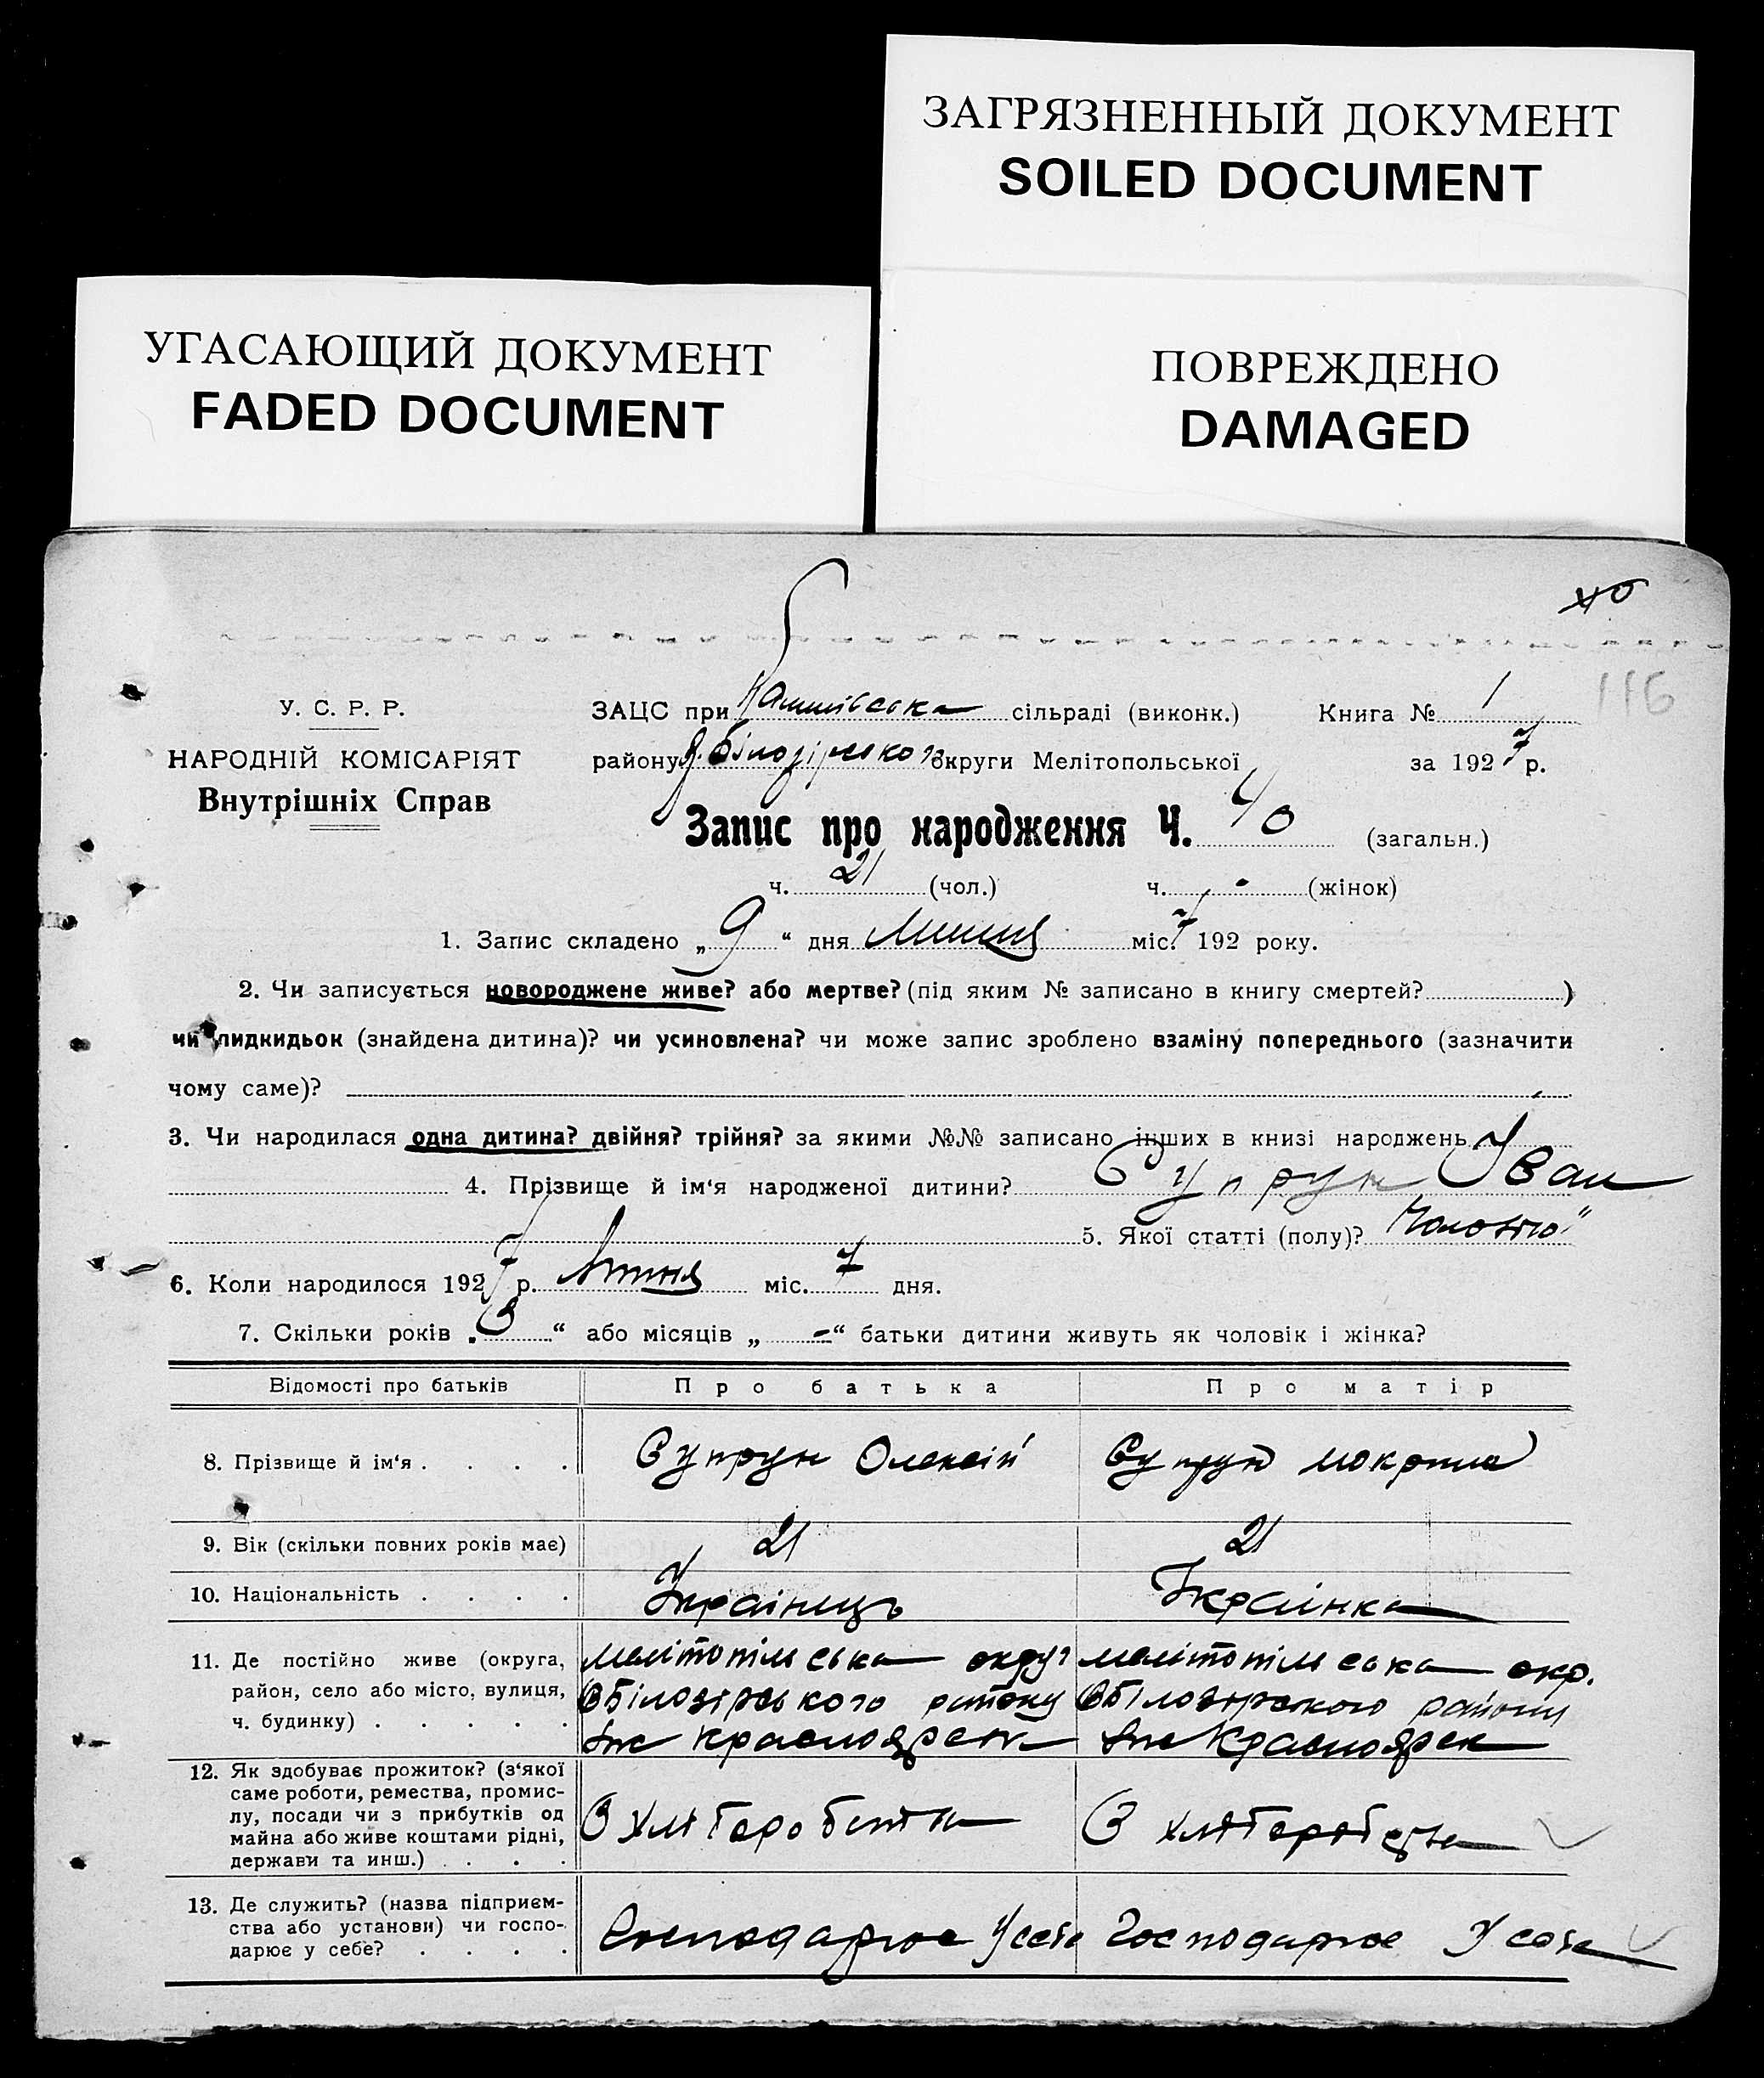 ЗАГРЯЗНЕННЫЙ ДОКУМЕНТ
SOILED DOCUMENT
УГАСАЮЩИЙ ДОКУМЕНТ
FADED DOCUMENT
ПОВРЕЖДЕНО
DAMAGED
116
У. С. Р. Р.
НАРОДНІЙ КОМІСАРІЯТ
Внутрішніх Справ
ЗАЦС при сільраді (виконк.) Книга № 1
району округи Мелітопольської за 1927 р.
Запис про народження Ч. 40 (загальн.)
ч. 21 (чол.) ч. - (жінок)
1. Запис складено „9“ дня Липня міс. 7 192 року.
2. Чи записується новороджене живе? або мертве? (під яким № записано в книгу смертей? )
чи пидкидьок (знайдена дитина)? чи усиновлена? чи може запис зроблено взаміну попереднього (зазначити
чому саме)?
3. Чи народилася одна дитина? двійня? трійня? за якими №№ записано інших в книзі народжень
4. Прізвище й ім‘я народженої дитини? Супрун Іван
5. Якої статті (полу)?
6. Коли народилося 1927 р. Липня міс. 7 дня.
7. Скільки років „3“ або місяців „-“ батьки дитини живуть як чоловік і жінка?
Відомості про батьків Про батька Про матір
8. Прізвище й ім‘я . . . . Супрун Олексій Супрун мокрина
9. Вік (скільки повних років має) 21 21
10. Національність . . . . Українець Українка
11. Де постійно живе (округа,
район, село або місто, вулиця,
ч. будинку) . . . . .
мелітопільська округ
Вбілозірського району
мелітопільська окр.
Вбілозірського району
12. Як здобуває прожиток? (з‘якої
саме роботи, ремества, промис-
лу, посади чи з прибутків од
майна або живе коштами рідні,
держави та инш.) . . . .
З хліборобства
З хліборобства
13. Де служить? (назва підприєм-
ства або установи) чи госпо-
дарює у себе? . . . .
Господарює У себе
Господарює У себе